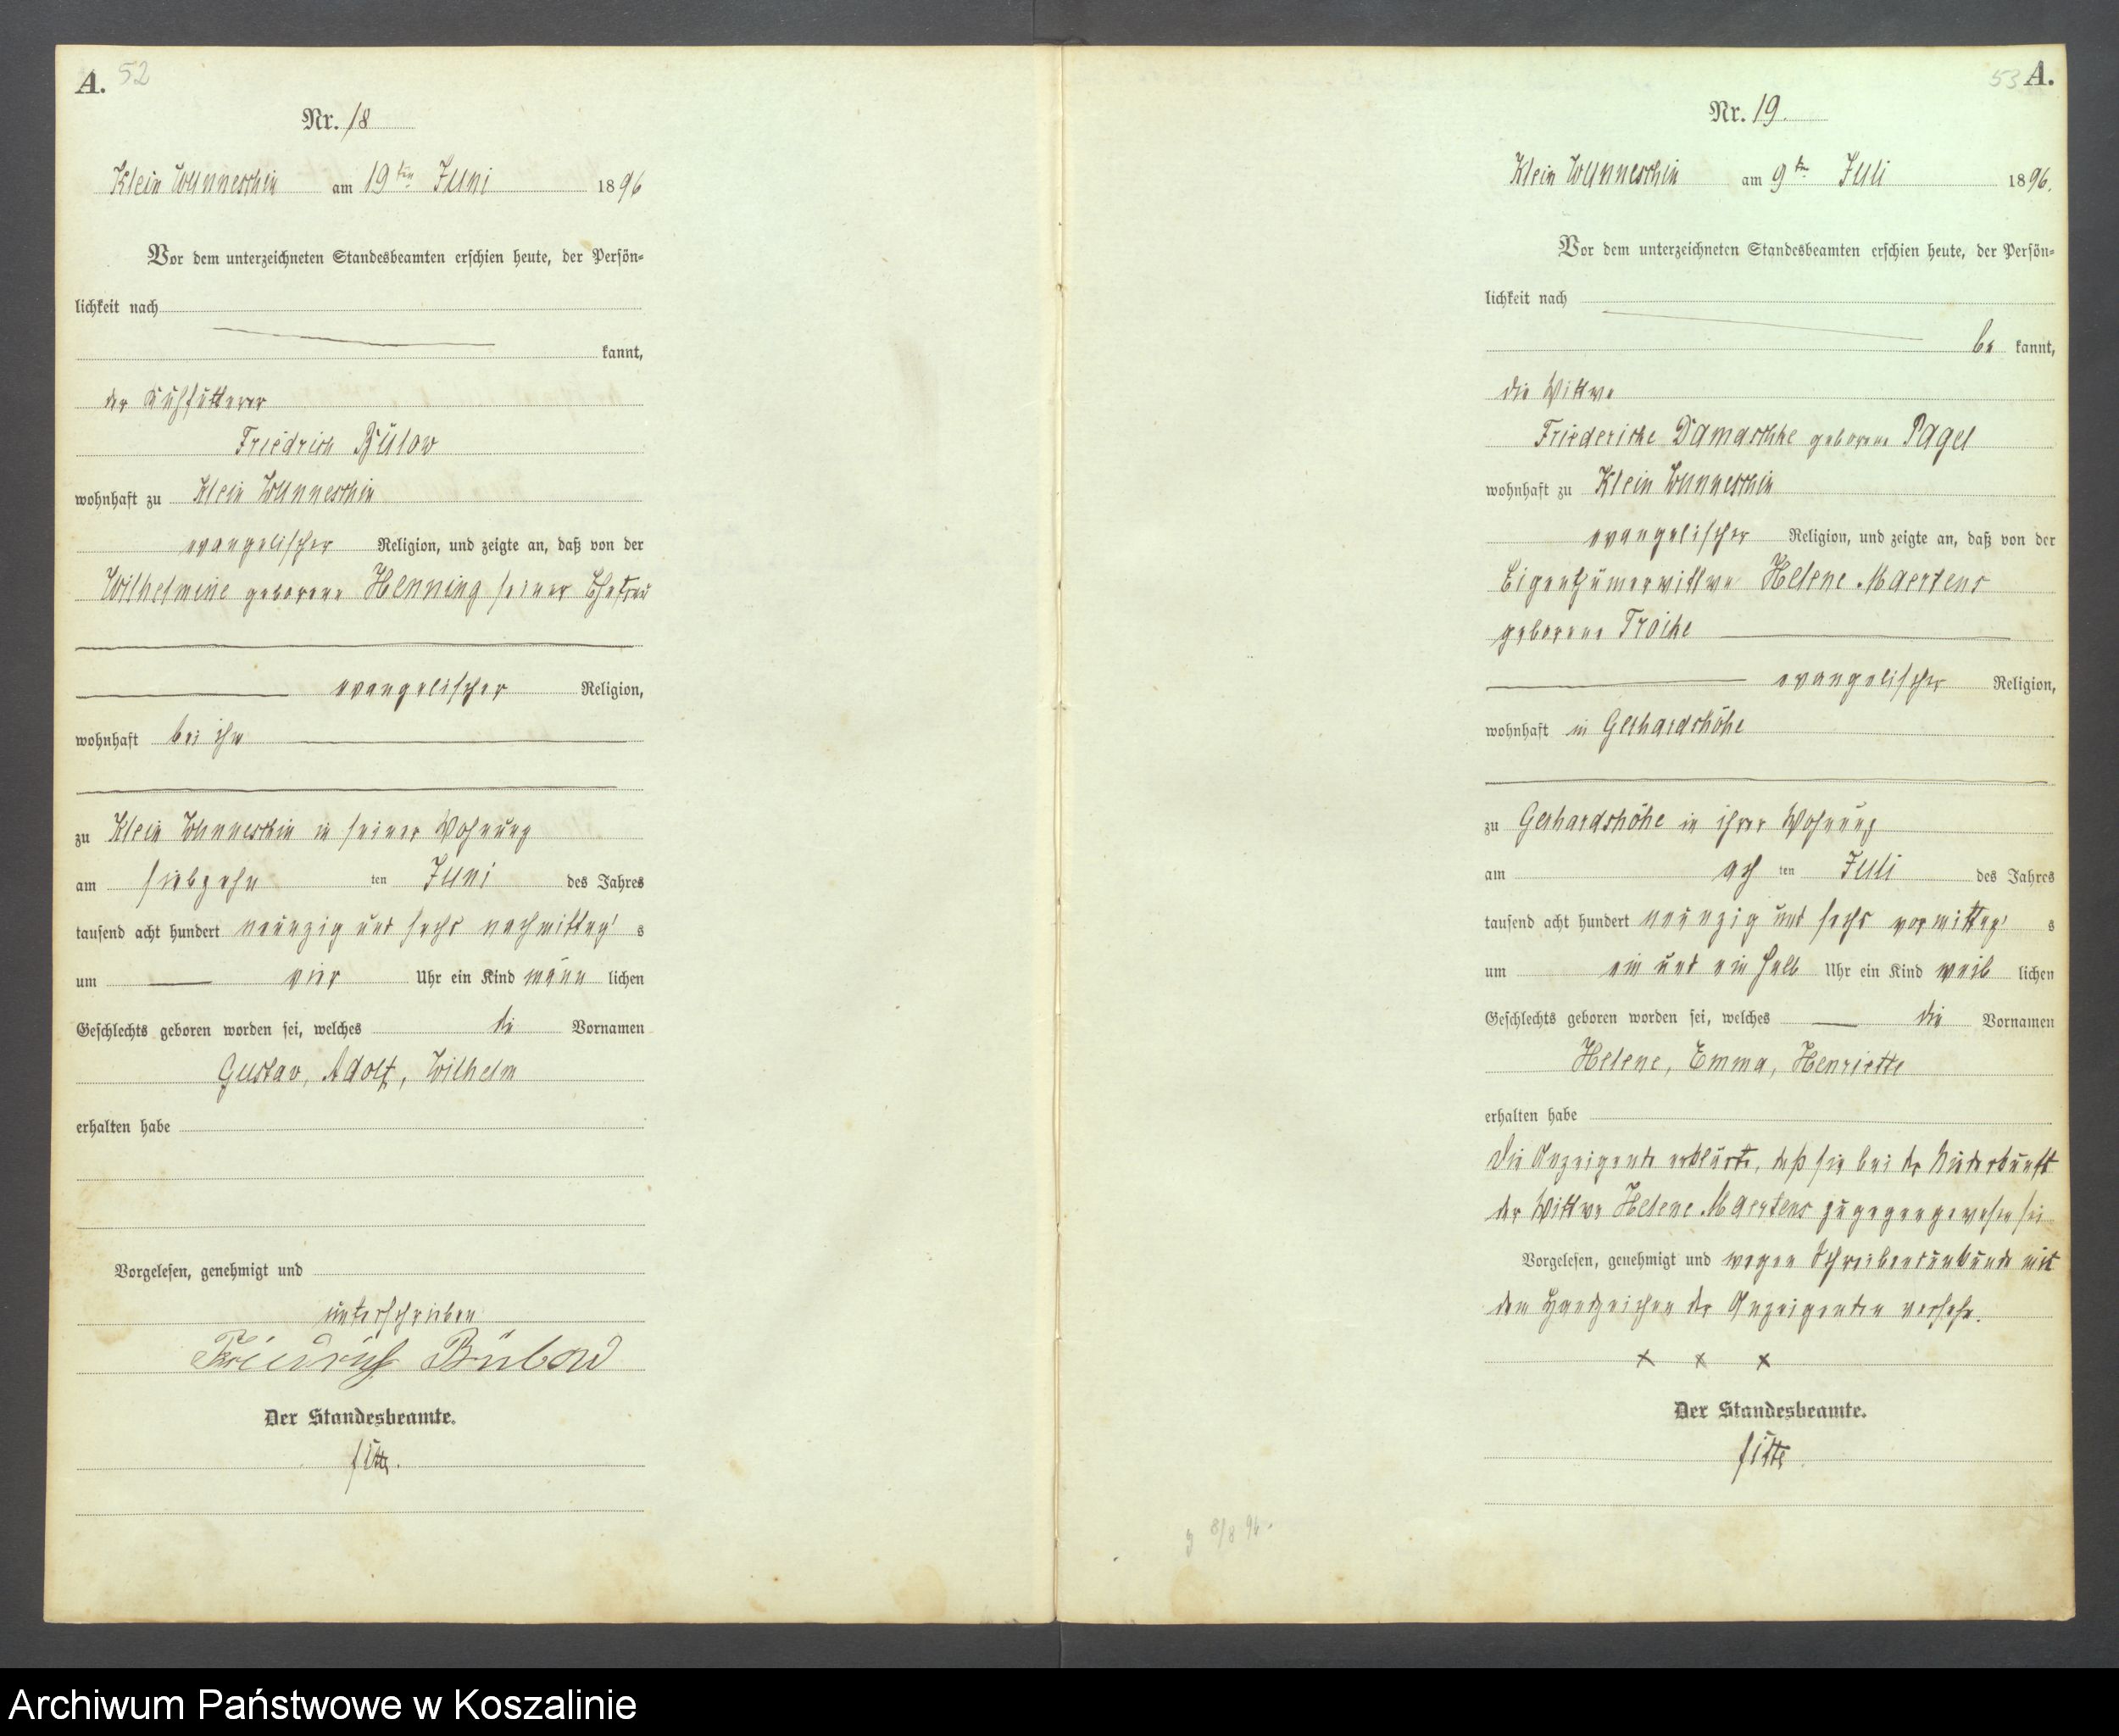 A. 52
Nr. 18
Klein Wunneschin am 19ten Juni 1896
Vor dem unterzeichneten Standesbeamten erschien heute, der Persön-
lichkeit nach
kannt,
der Kuhfütterer
Friedrich Bülow
wohnhaft zu Klein Wunneschin
evangelischer Religion, und zeigte an, daß von der
Wilhelmine geborene Henning seiner Ehefrau
evangelischer Religion,
wohnhaft bei ihm
zu Klein Wunneschin in seiner Wohnung
am siebzehn ten Juni des Jahres
tausend acht hundert neunzig und sechs nachmittag s
um vier Uhr ein Kind männ lichen
Geschlechts geboren worden sei, welches die Vornamen
Gustav, Adolf, Wilhelm
erhalten habe
Vorgelesen, genehmigt und
unterschrieben
Friedrich Bülow
Der Standesbeamte.
53 A.
Nr. 19.
Klein Wunneschin am 9ten Juli 1896.
Vor dem unterzeichneten Standesbeamten erschien heute, der Persön-
lichkeit nach
be kannt,
die Wittwe
Friederike Damaschke geborene Pagel
wohnhaft zu Klein Wunneschin
evangelischer Religion, und zeigte an, daß von der
Eigenthümerwittwe Helene Maertens
geborene Troike
evangelischer Religion,
wohnhaft in Gerhardshöhe
zu Gerhardshöhe in ihrer Wohnung
am ach ten Juli des Jahres
tausend acht hundert neunzig und sechs vormittag s
um ein und ein halb Uhr ein Kind weib lichen
Geschlechts geboren worden sei, welches die Vornamen
Helene, Emma, Henriette
erhalten habe
Die Anzeigende erklärte, daß sie bei der Niederkunft
der Wittwe Helene Maertens zugegen gewesen sei
Vorgelesen, genehmigt und wegen Schreibensunkunde mit
dem Handzeichen der Anzeigenden versehen.
x x x
Der Standesbeamte.
8/8 96.
Archiwum Państwowe w Koszalinie